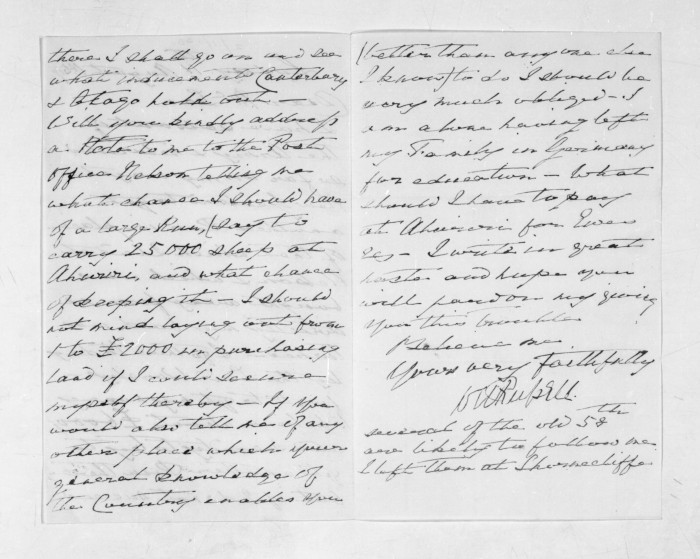 there I shall go on and see
what inducements Canterbury
& Otago hold out —
Will you kindly address
a Note to me to the Post
office Nelson telling me
what chance I should have
of a large Run, (say to
carry 25000 sheep at
Ahuriri, and what chance
of keeping it — I should
not mind laying out from
1 to £2000 in purchasing
land if I could secure
myself thereby — If you
would also tell me if any
other place which your
general knowledge of
the Country enables you
(better than any one else
I know) to do I should be
very much obliged — I
am alone having left
my Family in Germany
for education — What
should I have to pay
at Ahuriri for Ewes
&c — I write in great
haste and hope you
will pardon my giving
you this trouble
Believe me
Yours very faithfully
Russell
several of the old 58th
are likely to follow me
I left them at Shorncliffe